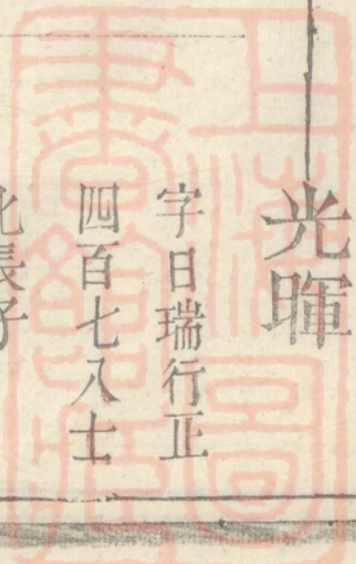 光暉
字日瑞行正
四百七八士
化長子